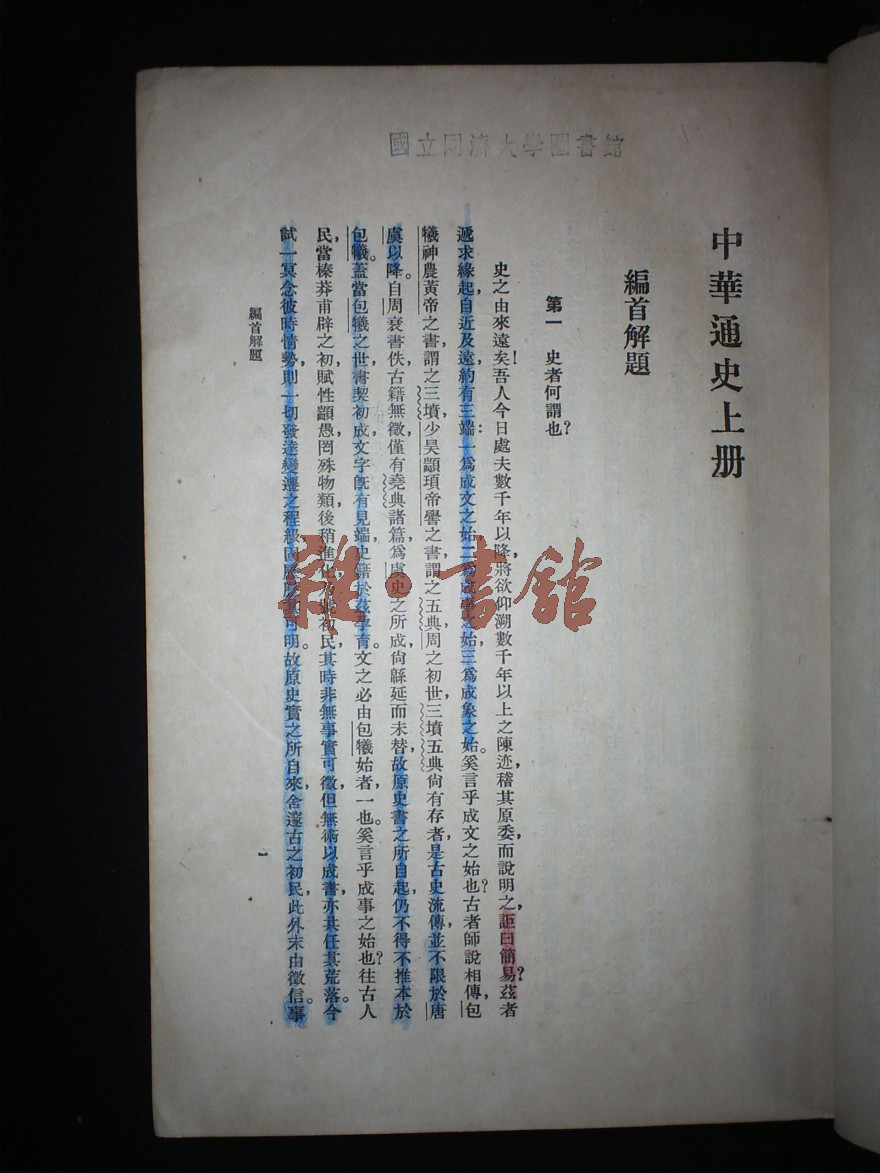 國立同濟大學圖書館
中華通史上册
編首解題
第一 史者何謂也?
史之由來遠矣!吾人今日處夫數千年以降,將欲仰溯數千年以上之陳迹,稽其原委,而說明之,詎曰簡易?茲者
遞求緣起,自近及遠,約有三端:一爲成文之始,二爲成事之始,三爲成象之始。奚言乎成文之始也?古者師說相傳,包
犧神農黃帝之書,謂之三墳,少昊顓頊帝嚳之書,謂之五典,周之初世,三墳五典尙有存者,是古史流傳,並不限於唐
虞以降。自周衰書佚,古籍無徵,僅有堯典諸篇,爲虞史之所成,尙緜延而未替,故原史書之所自起,仍不得不推本於
包犧。蓋當包犧之世,書契初成,文字旣有見端,史籍於茲孕育。文之必由包犧始者一也。奚言乎成事之始也?往古人
民,當榛莽甫辟之初,賦性顓愚,罔殊物類,後稍進化,乃 初民,其時非無事實可徵,但無術以成書,亦共任其荒落。今
試一冥念彼時情勢,則一切發達變遷之程級,固 可明。故原史實之所自來,舍邃古之初民,此外末由徵信。事
編首解題
一
雜·書館